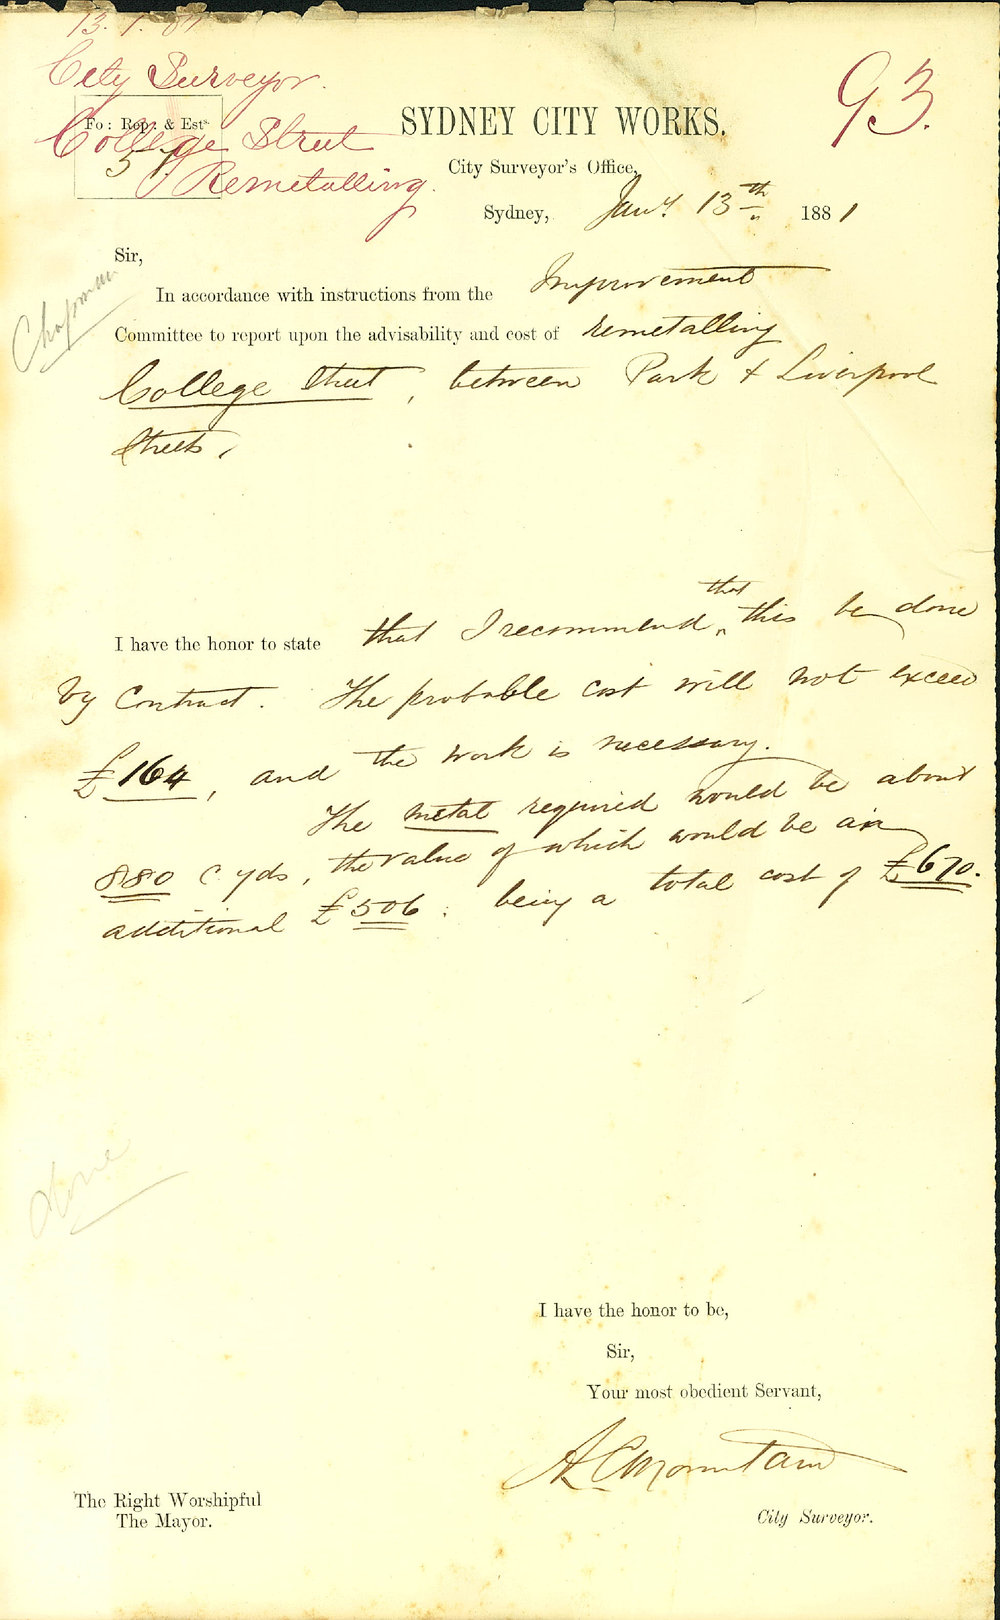 13.1.81
City Surveyor.
93.
Fo: Rep: & Est.
College Street
51
Remetalling.
SYDNEY CITY WORKS.
City Surveyor's Office,
Sydney, Jany 13th 1881
Sir,
Chapman
In accordance with instructions from the Improvement
Committee to report upon the advisability and cost of remetalling
College Street, between Park & Liverpool
Streets,
I have the honor to state that I recommend that this be done
by Contract. The probable cost will not exceed
£164, and the work is necessary.
The metal required would be about
880 c yds, the value of which would be an
additional £506: being a total cost of £670.
I have the honor to be,
Sir,
Your most obedient Servant,
A C Mountain
City Surveyor.
The Right Worshipful
The Mayor.